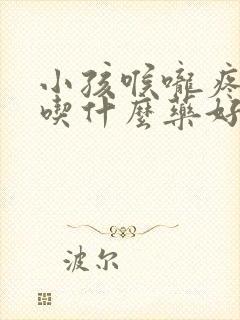 小孩喉嚨疼
喫什麼藥好
波尔